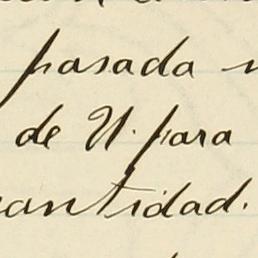 pasada
de U. para
cantidad.